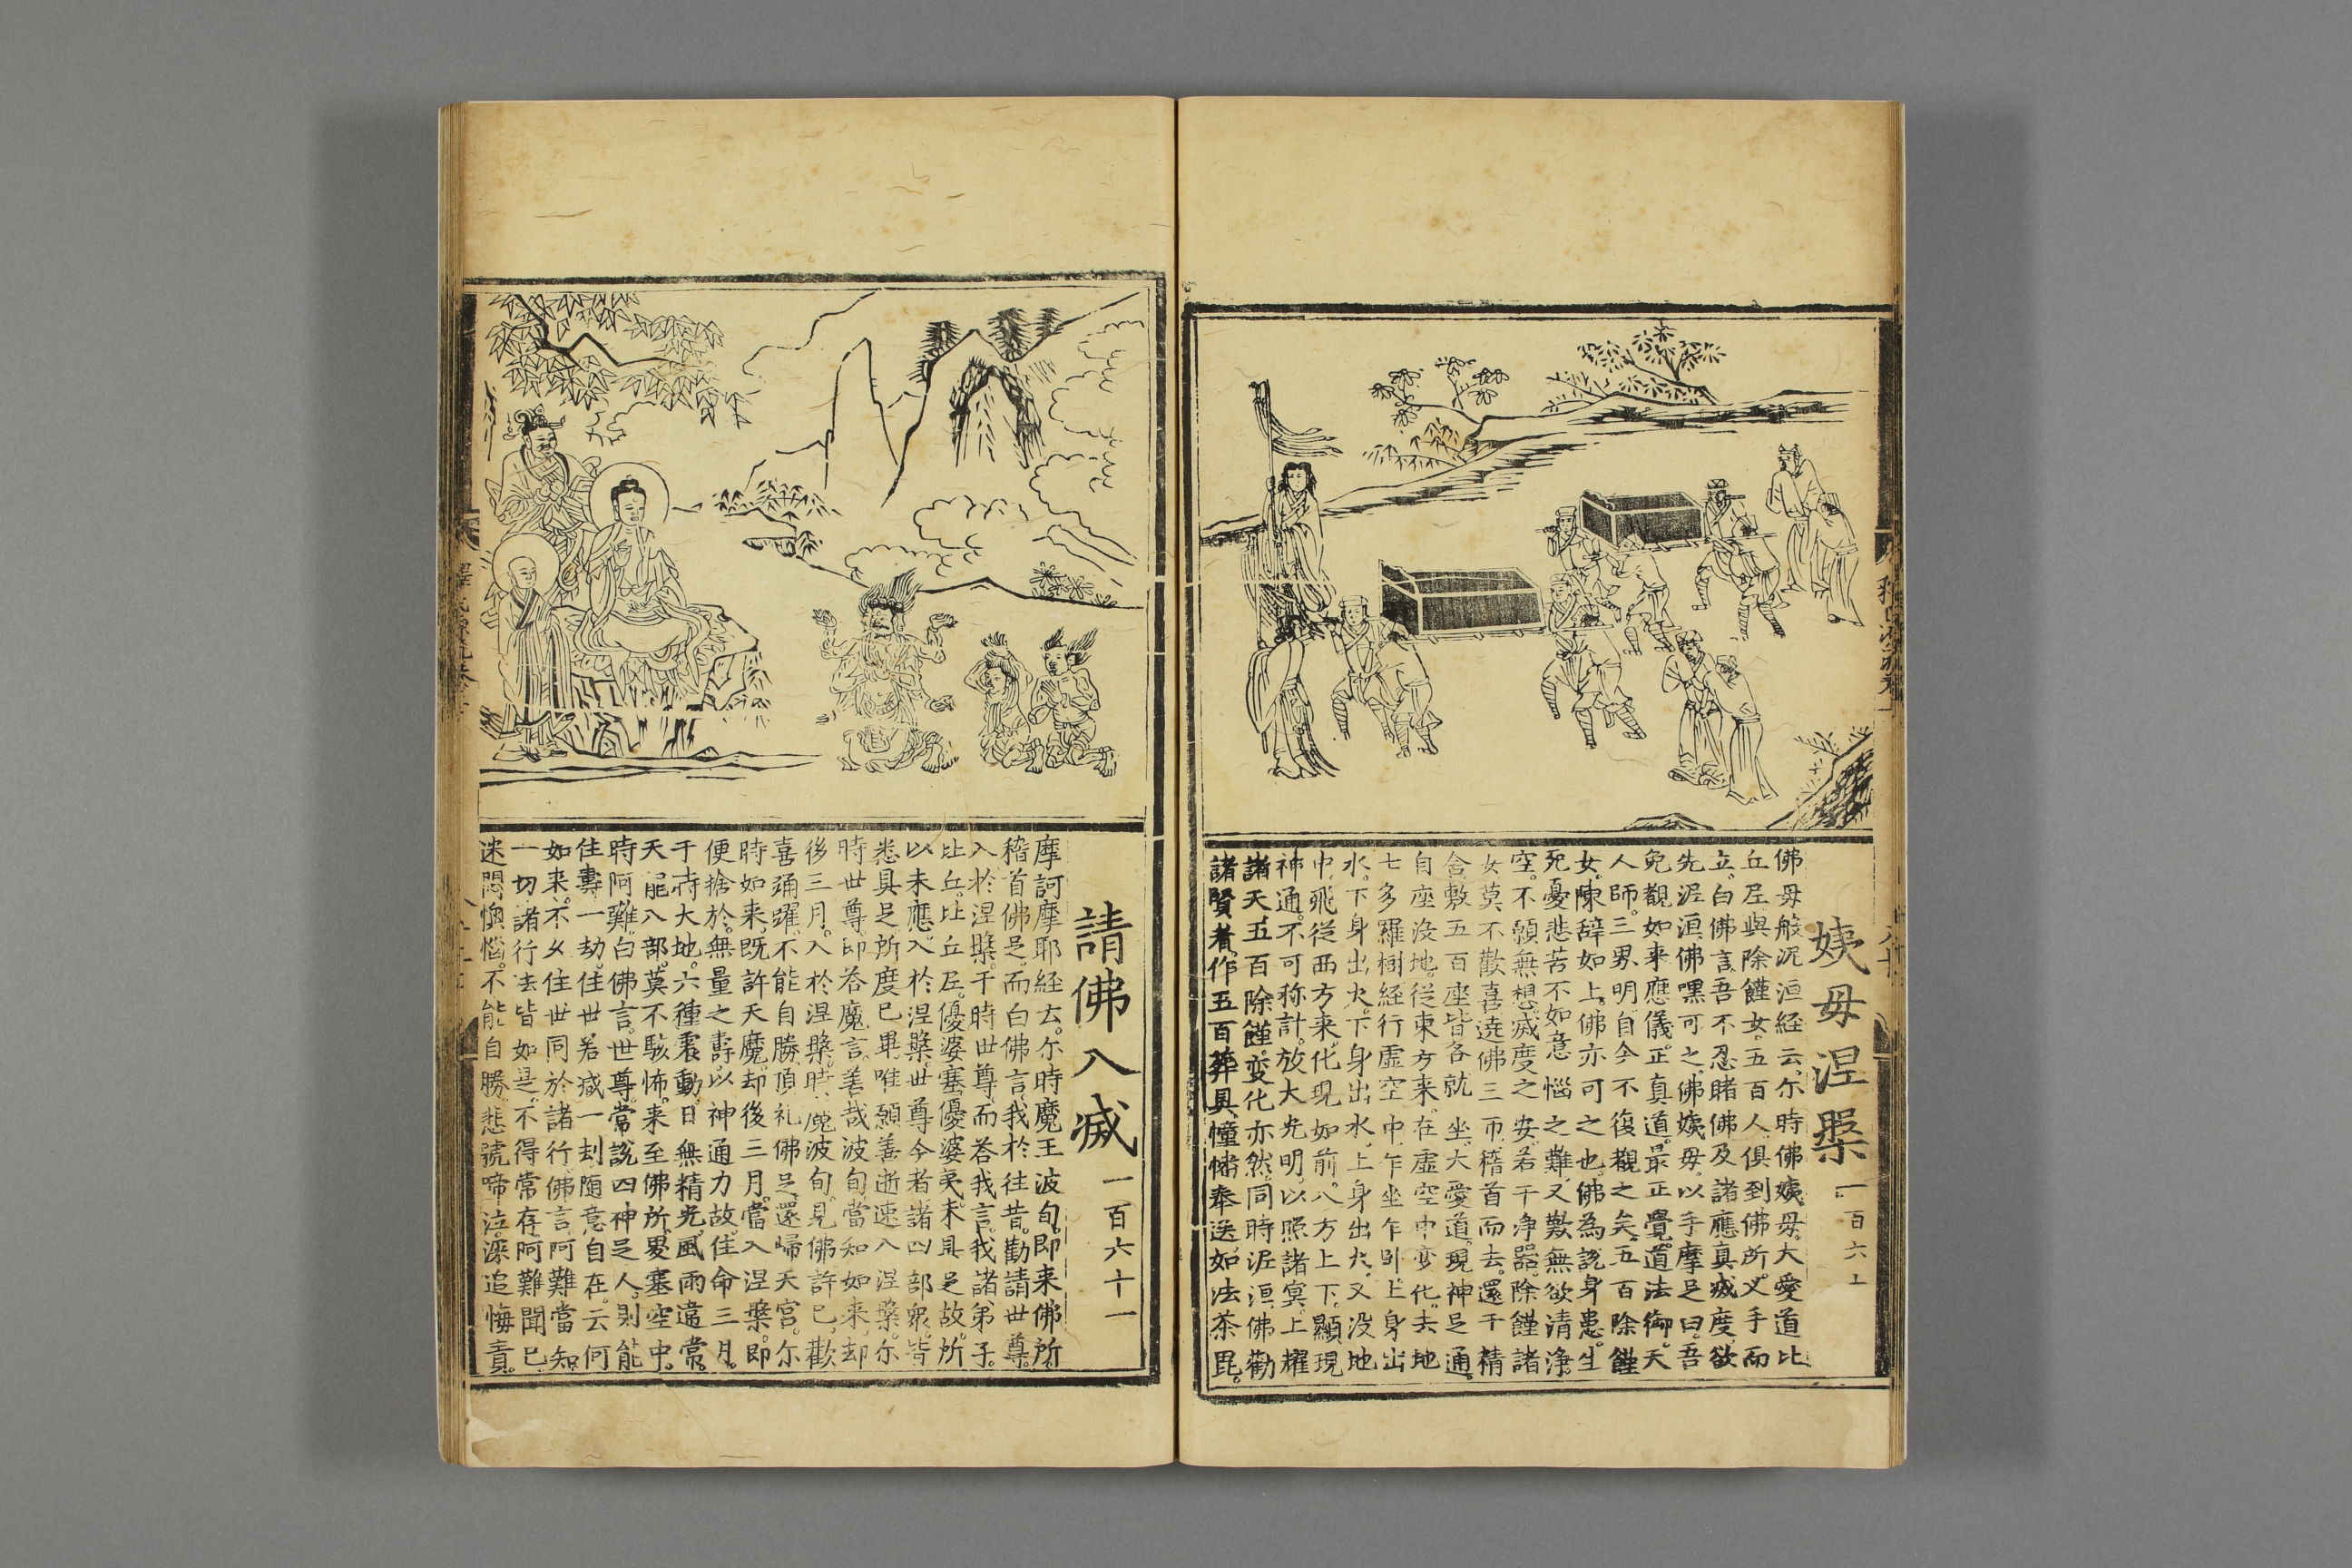 姨母涅槃 一百六十
佛母般泥洹経云尒時佛姨母大愛道比
丘尼與除饉女五百人俱到佛所叉手而
立白佛言吾不忍睹佛及諸應真滅度欲
先泥洹佛嘿可之佛姨母以手摩足曰吾
免覩如来應儀正真道最正覺道法御天
人師三界明自今不復覩之矣五百除饉
女陳辞如上佛亦可之也佛為說身患生
死憂悲苦不如意惱之難又歎無欲清淨
空不願無想滅度之安若干淨器除饉諸
女莫不歡喜遶佛三帀稽首而去還于精
舍敷五百座皆各就坐大愛道現神足通
自座没地從東方来在虛空中変化去地
七多羅樹経行虛空中乍坐乍卧上身出
水下身出火下身出水上身出火又没地
中飛從西方来化現如前八方上下顯現
神通不可称計放大光明以照諸冥上耀
諸天五百除饉変化亦然同時泥洹佛勸
諸賢者作五百葬具幢幡奉送如法茶毘
請佛入滅 一百六十一
摩訶摩耶経云尒時魔王波旬即来佛所
稽首佛足而白佛言我於往昔勸請世尊
入於涅槃于時世尊而荅我言我諸弟子
比丘比丘尼優婆塞優婆夷未具足故所
以未應入於涅槃世尊今者諸四部衆皆
悉具足所度已畢唯願善逝速入涅槃尒
時世尊即荅魔言善哉波旬當知如来却
後三月入於涅槃時魔波旬見佛許已歡
喜踊躍不能自勝頂礼佛足還歸天宮尒
時如来既許天魔却後三月當入涅槃即
便捨於無量之壽以神通力故住命三月
于時大地六種震動日無精光風雨違常
天龍八部莫不駭怖来至佛所畟塞空中
時阿難白佛言世尊常說四神足人則能
住壽一劫住世若滅一刦随意自在云何
如来不乆住世同於諸行佛言阿難當知
一切諸行法皆如是不得常存阿難聞已
迷悶懊惱不能自勝悲號啼泣深追悔責